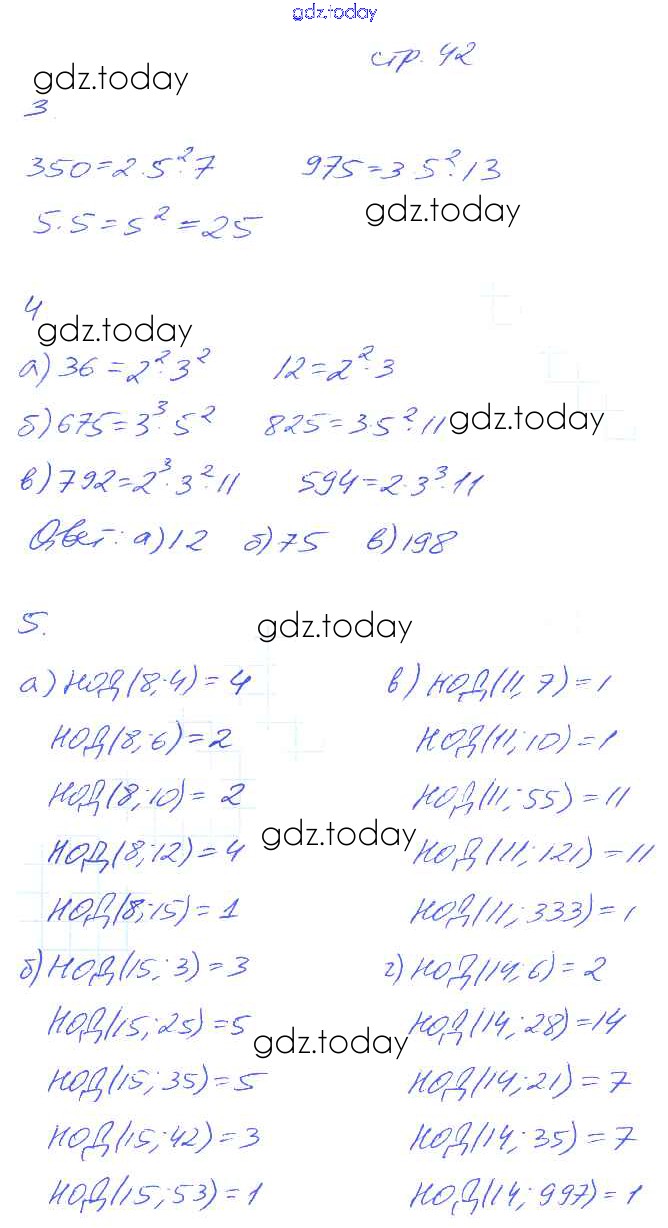 gdz.today
стр. 42
gdz.today
3.
350=2·5²·7 975=3·5²·13
gdz.today
5·5=5²=25
4
gdz.today
а) 36=2²·3² 12=2²·3
б) 675=3³·5² 825=3·5²·11
gdz.today
в) 792=2³·3²·11 594=2·3³·11
Ответ: а) 12 б) 75 в) 198
5.
gdz.today
а) НОД(8;4)=4 в) НОД(11;7)=1
НОД(8;6)=2 НОД(11;10)=1
НОД(8;10)=2 НОД(11;55)=11
gdz.today
НОД(8;12)=4 НОД(11;121)=11
НОД(8;15)=1 НОД(11;333)=1
б) НОД(15;3)=3 г) НОД(14;6)=2
НОД(15;25)=5 НОД(14;28)=14
gdz.today
НОД(15;35)=5 НОД(14;21)=7
НОД(15;42)=3 НОД(14;35)=7
НОД(15;53)=1 НОД(14;997)=1